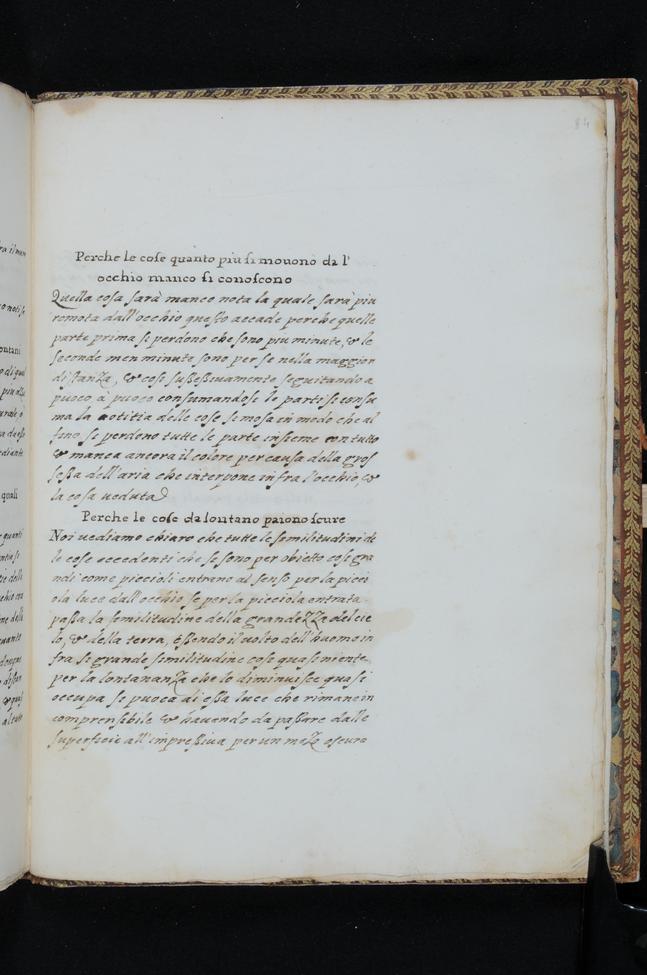 84
Perche le cose quanto piu si mouono da l'
occhio manco si conoscono
Quella cosa sarà manco nota la quale sarà piu
remota dall'occhio questo accade perche quelle
parte prima si perdono che sono piu minute, & le
seconde men minute sono per se nella maggior
distanza, & cose sußeßiuamente seguitando a
puoco à puoco consumandose le parte se consu
ma la notitia delle cose se mosa in modo che al
fine se perdeno tutte le parte insieme con tutto
& manca ancora il colore per causa della gros
seßa dell'aria che interpone infra l'occhio, &
la cosa ueduta
Perche le cose da lontano paiono scure
Noi uediamo chiaro che tutte le semilitudini de
le cose eccedenti che se sono per obietto cose gra
ndi come piccioli entrano al senso per la picci
ola luce dall'occhio se per la picciola entrata
paßa la semilitudine della grandezza del cie
lo, & della terra, eßendo il uolto dell'huomo in
fra se grande semilitudine cose quase niente
per la lontananza che lo diminuisce quasi
occupa se puoca di eßa luce che rimane in
comprensibile & hauendo da paßare dalle
superficie all'impreßiua per un mezo oscuro